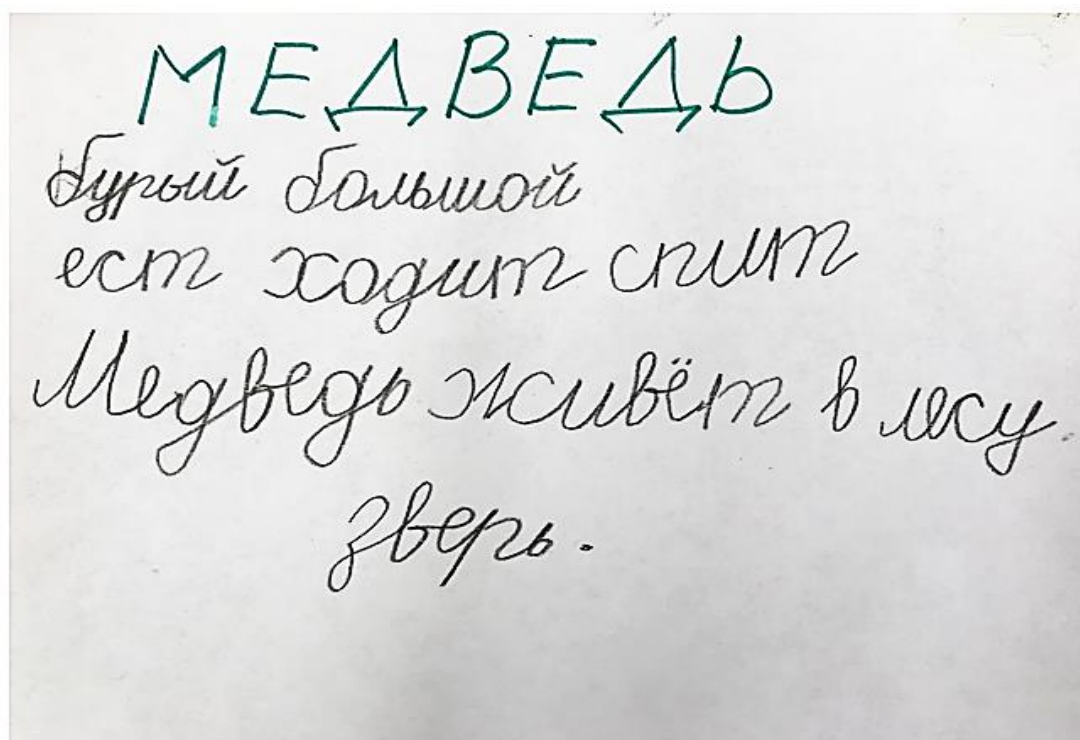 МЕДВЕДЬ
бурый большой
ест ходит спит
Медведь живёт в лесу.
зверь.